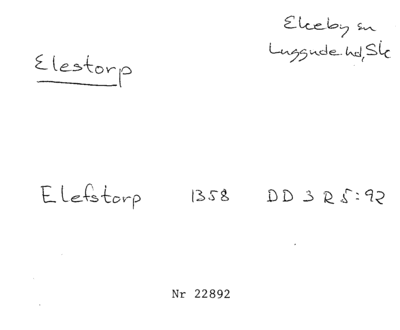 Ekeby sn
Luggude hd, Sk
Elestorp
Elefstorp 1358 DD 3 R 5:92
Nr 22892